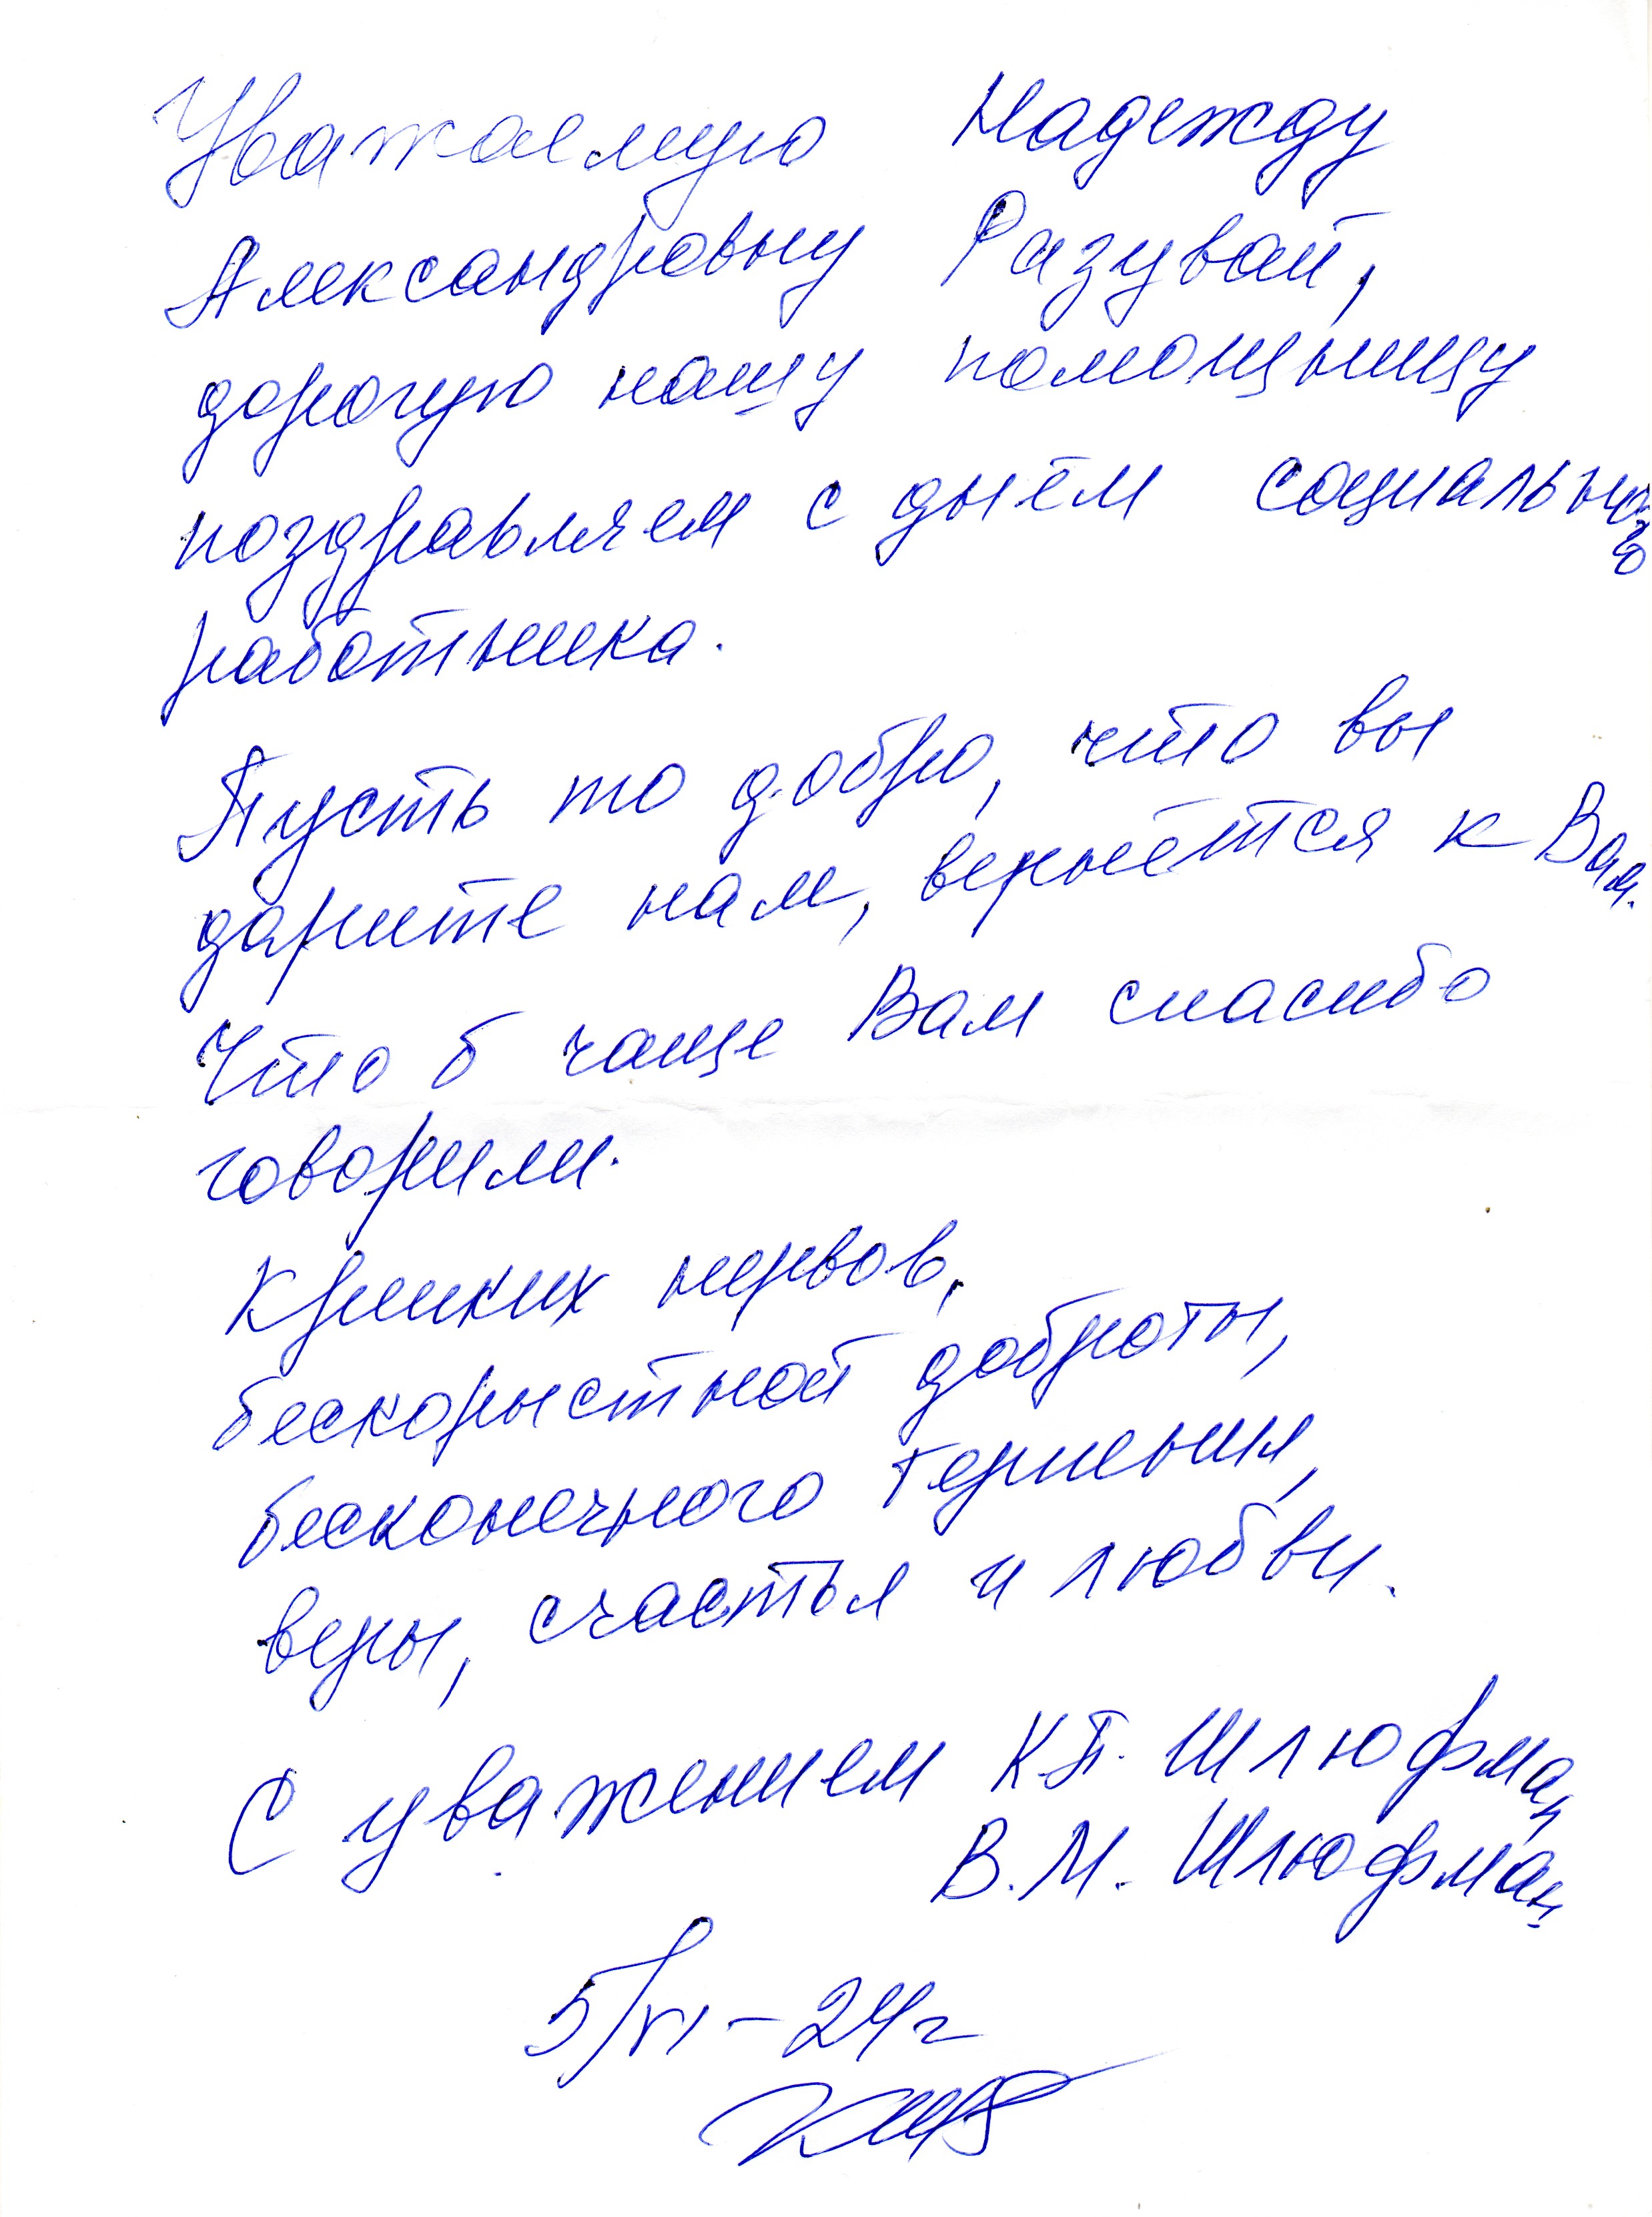 Уважаемую Надежду
Александровну Разувай,
дорогую нашу помощницу
поздравляем с днём социального
работника.
Пусть то добро, что вы
дарите нам, вернётся к Вам.
Что б чаще Вам спасибо
говорили.
Крепких нервов,
бескорыстной доброты,
бесконечного терпения,
веры, счастья и любви.
С уважением К.П. Шлюфман
В.М. Шлюфман
5/VI – 24г